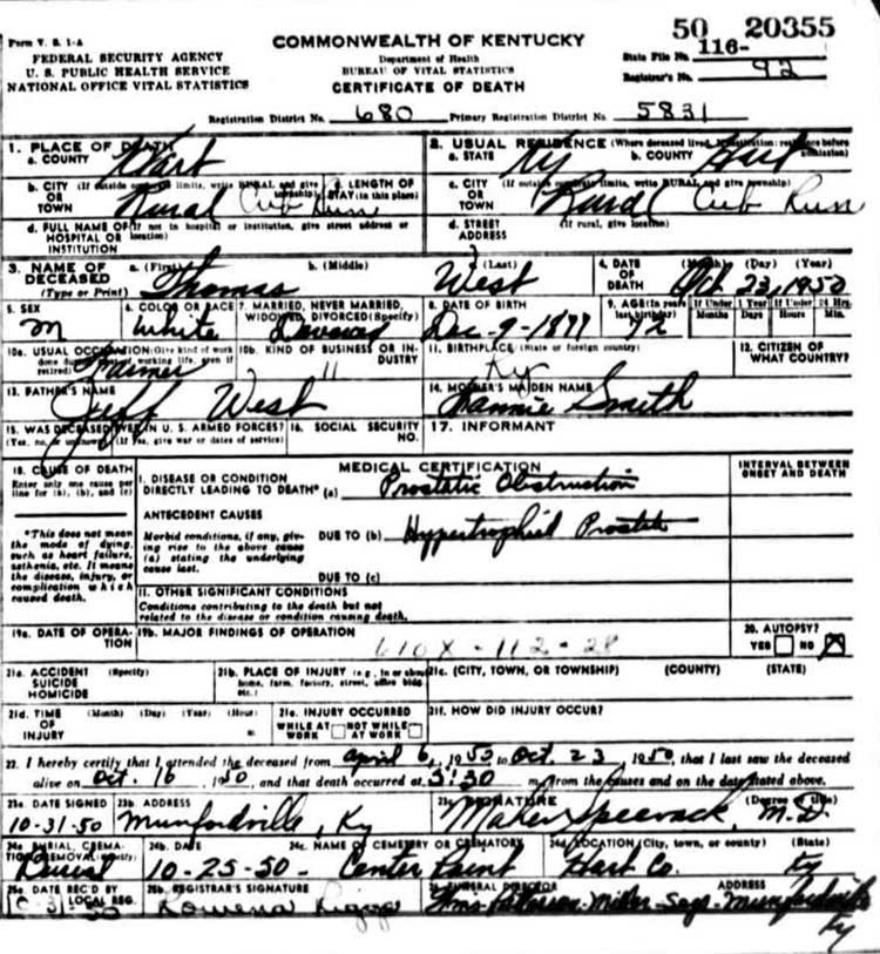 50 20355
Form V. S. 1-A
COMMONWEALTH OF KENTUCKY
FEDERAL SECURITY AGENCY
Department of Health
State File No. 116-
U. S. PUBLIC HEALTH SERVICE
BUREAU OF VITAL STATISTICS
Registrar's No. 92
NATIONAL OFFICE VITAL STATISTICS
CERTIFICATE OF DEATH
Registration District No. 680 Primary Registration District No. 5831
1. PLACE OF DEATH
2. USUAL RESIDENCE (Where deceased lived. If institution: residence before admission)
a. COUNTY Hart
a. STATE Ky b. COUNTY Hart
b. CITY (If outside corporate limits, write RURAL and give township) OR TOWN Rural Cub Run
c. LENGTH OF STAY (in this place)
c. CITY (If outside corporate limits, write RURAL and give township) OR TOWN Rural Cub Run
d. FULL NAME OF (If not in hospital or institution, give street address or location) HOSPITAL OR INSTITUTION
d. STREET ADDRESS (If rural, give location)
3. NAME OF DECEASED (Type or Print)
a. (First) Thomas b. (Middle) (Last) West
4. DATE OF DEATH (Month) (Day) (Year) Oct 23, 1950
5. SEX M
6. COLOR OR RACE White
7. MARRIED, NEVER MARRIED, WIDOWED, DIVORCED (Specify)
8. DATE OF BIRTH Dec-9-1877
9. AGE (In years last birthday) 72
If Under 1 Year Months Days
If Under 24 Hrs. Hours Min.
10a. USUAL OCCUPATION (Give kind of work done during most of working life, even if retired) Farmer
10b. KIND OF BUSINESS OR INDUSTRY "
11. BIRTHPLACE (State or foreign country) Ky
12. CITIZEN OF WHAT COUNTRY?
13. FATHER'S NAME Jeff West
14. MOTHER'S MAIDEN NAME Fannie Smith
15. WAS DECEASED EVER IN U. S. ARMED FORCES? (Yes, no, or unknown) (If yes, give war or dates of service)
16. SOCIAL SECURITY NO.
17. INFORMANT
18. CAUSE OF DEATH
Enter only one cause per line for (a), (b), and (c)
MEDICAL CERTIFICATION
INTERVAL BETWEEN ONSET AND DEATH
I. DISEASE OR CONDITION DIRECTLY LEADING TO DEATH* (a) Prostatic Obstruction
*This does not mean the mode of dying, such as heart failure, asthenia, etc. It means the disease, injury, or complication which caused death.
ANTECEDENT CAUSES
Morbid conditions, if any, giving rise to the above cause (a) stating the underlying cause last.
DUE TO (b) Hypertrophied Prostate
DUE TO (c)
II. OTHER SIGNIFICANT CONDITIONS
Conditions contributing to the death but not related to the disease or condition causing death.
19a. DATE OF OPERATION
19b. MAJOR FINDINGS OF OPERATION
610X-112-28
20. AUTOPSY? YES NO
21a. ACCIDENT SUICIDE HOMICIDE (Specify)
21b. PLACE OF INJURY (e.g., in or about home, farm, factory, street, office bldg. etc.)
21c. (CITY, TOWN, OR TOWNSHIP) (COUNTY) (STATE)
21d. TIME OF INJURY (Month) (Day) (Year) (Hour) m
21e. INJURY OCCURRED WHILE AT WORK NOT WHILE AT WORK
21f. HOW DID INJURY OCCUR?
22. I hereby certify that I attended the deceased from April 6, 1950 to Oct. 23, 1950, that I last saw the deceased
alive on Oct. 16, 1950, and that death occurred at 5:30 m., from the causes and on the date stated above.
23a. DATE SIGNED 10-31-50
23b. ADDRESS Munfordville, Ky
23c. SIGNATURE Speevack, M.D. (Degree or title)
24a. BURIAL, CREMATION, REMOVAL (Specify) Burial
24b. DATE 10-25-50
24c. NAME OF CEMETERY OR CREMATORY Center Point
24d. LOCATION (City, town, or county) (State) Hart Co. Ky
25a. DATE REC'D BY LOCAL REG.
25b. REGISTRAR'S SIGNATURE Rowena
FUNERAL DIRECTOR ADDRESS
Munfordville Ky